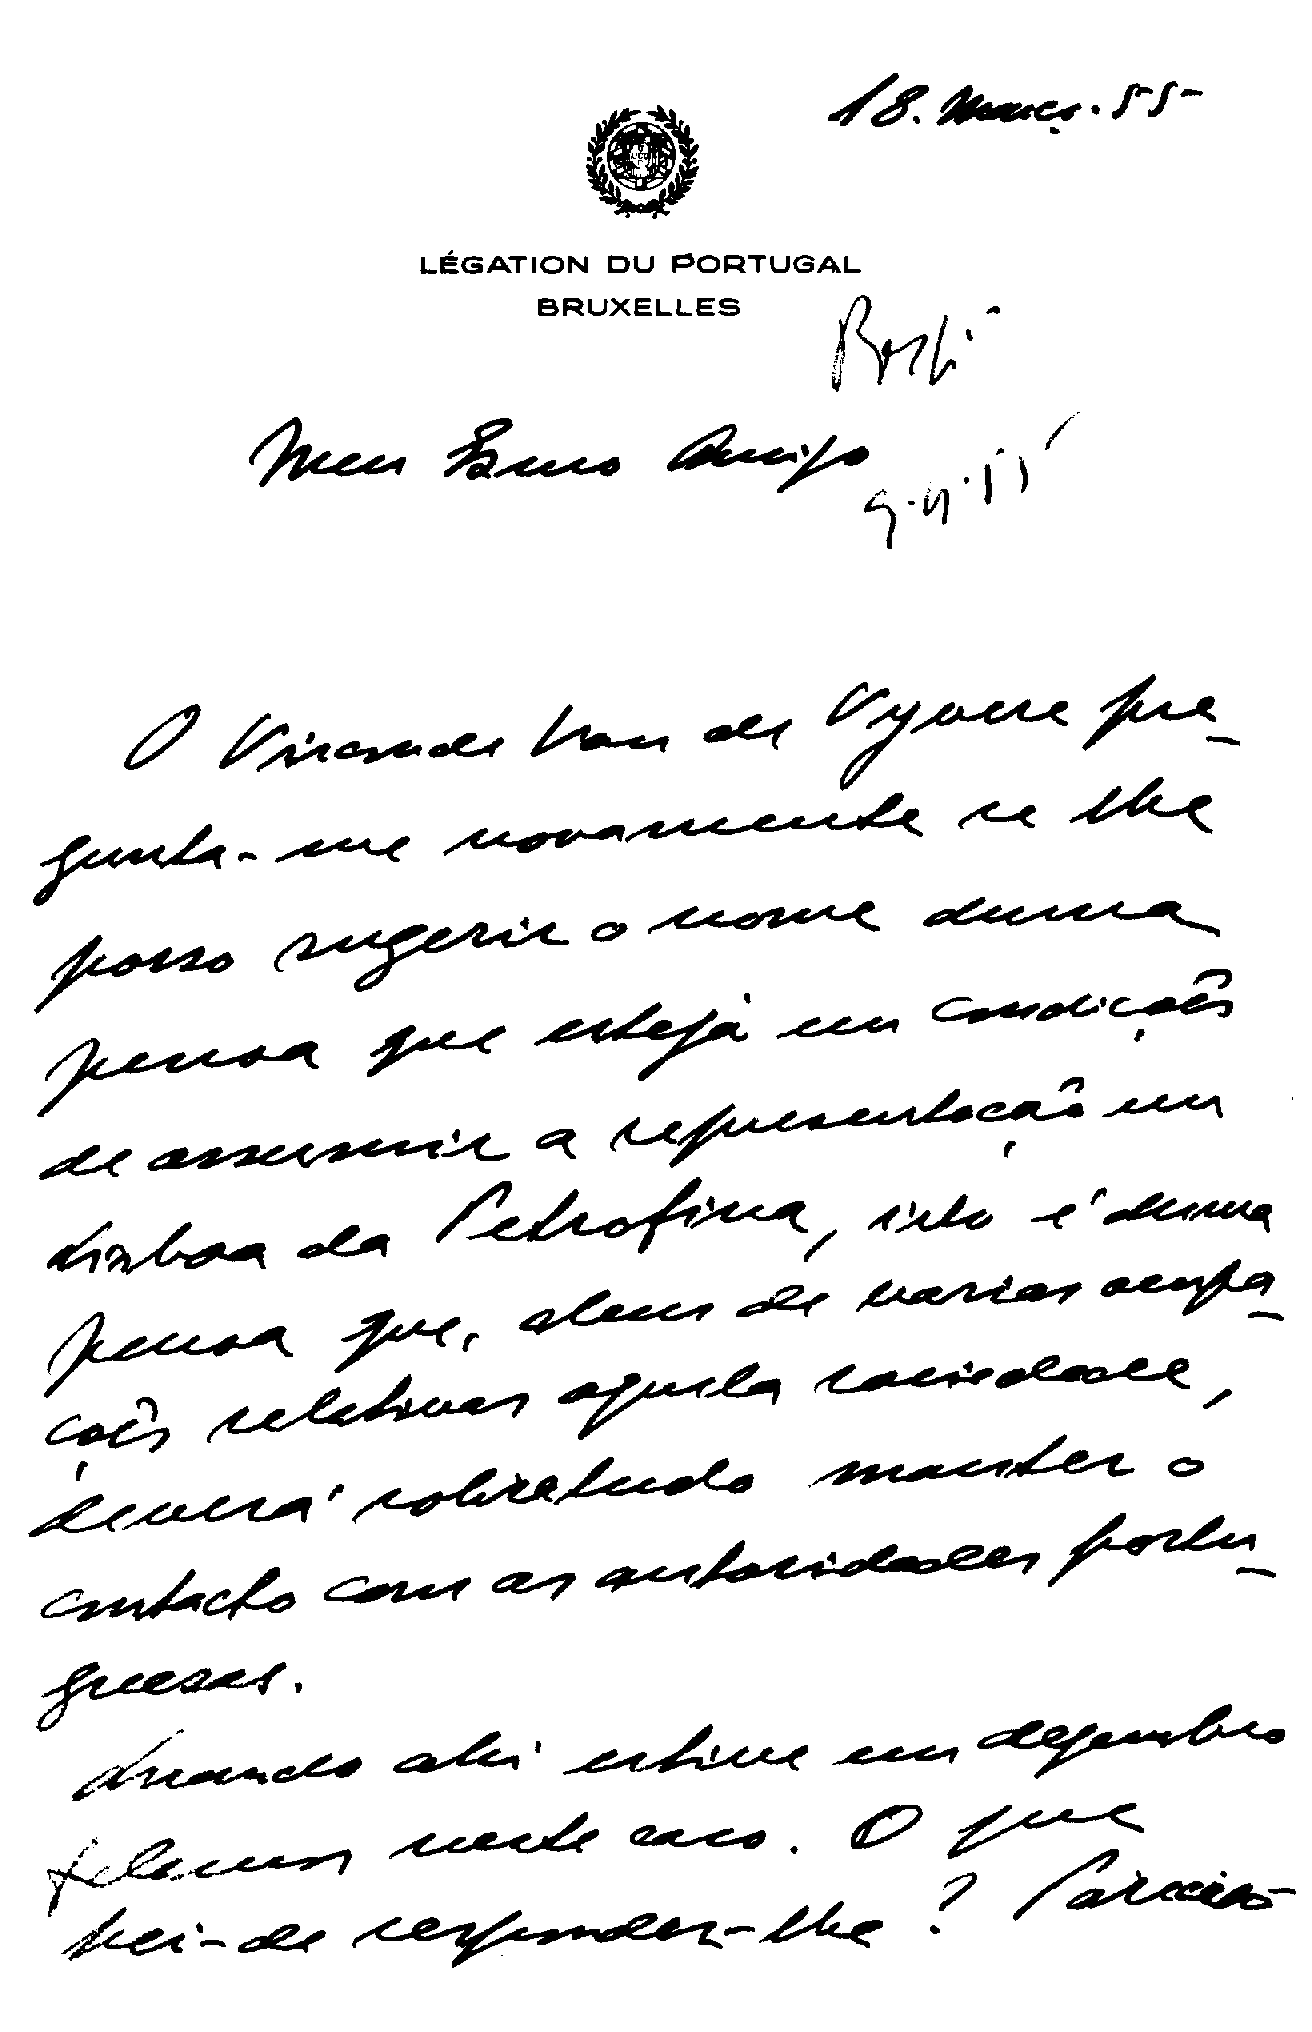 18. Março. 55-
LÉGATION DU PORTUGAL
BRUXELLES
Meu Exmo Amigo
O Visconde Van de Vyvere pre-
gunta-me novamente se lhe
posso sugerir o nome duma
pessoa que esteja em condições
de assumir a representação em
Lisboa da Petrofina, isto é duma
pessoa que, alem de varias ocupa-
ções relativas aquela sociedade,
deverá sobretudo manter o
contacto com as autoridades portu-
guesas.
Quando ahi estive em dezembro
falamos neste caso. O que
hei-de responder-lhe?